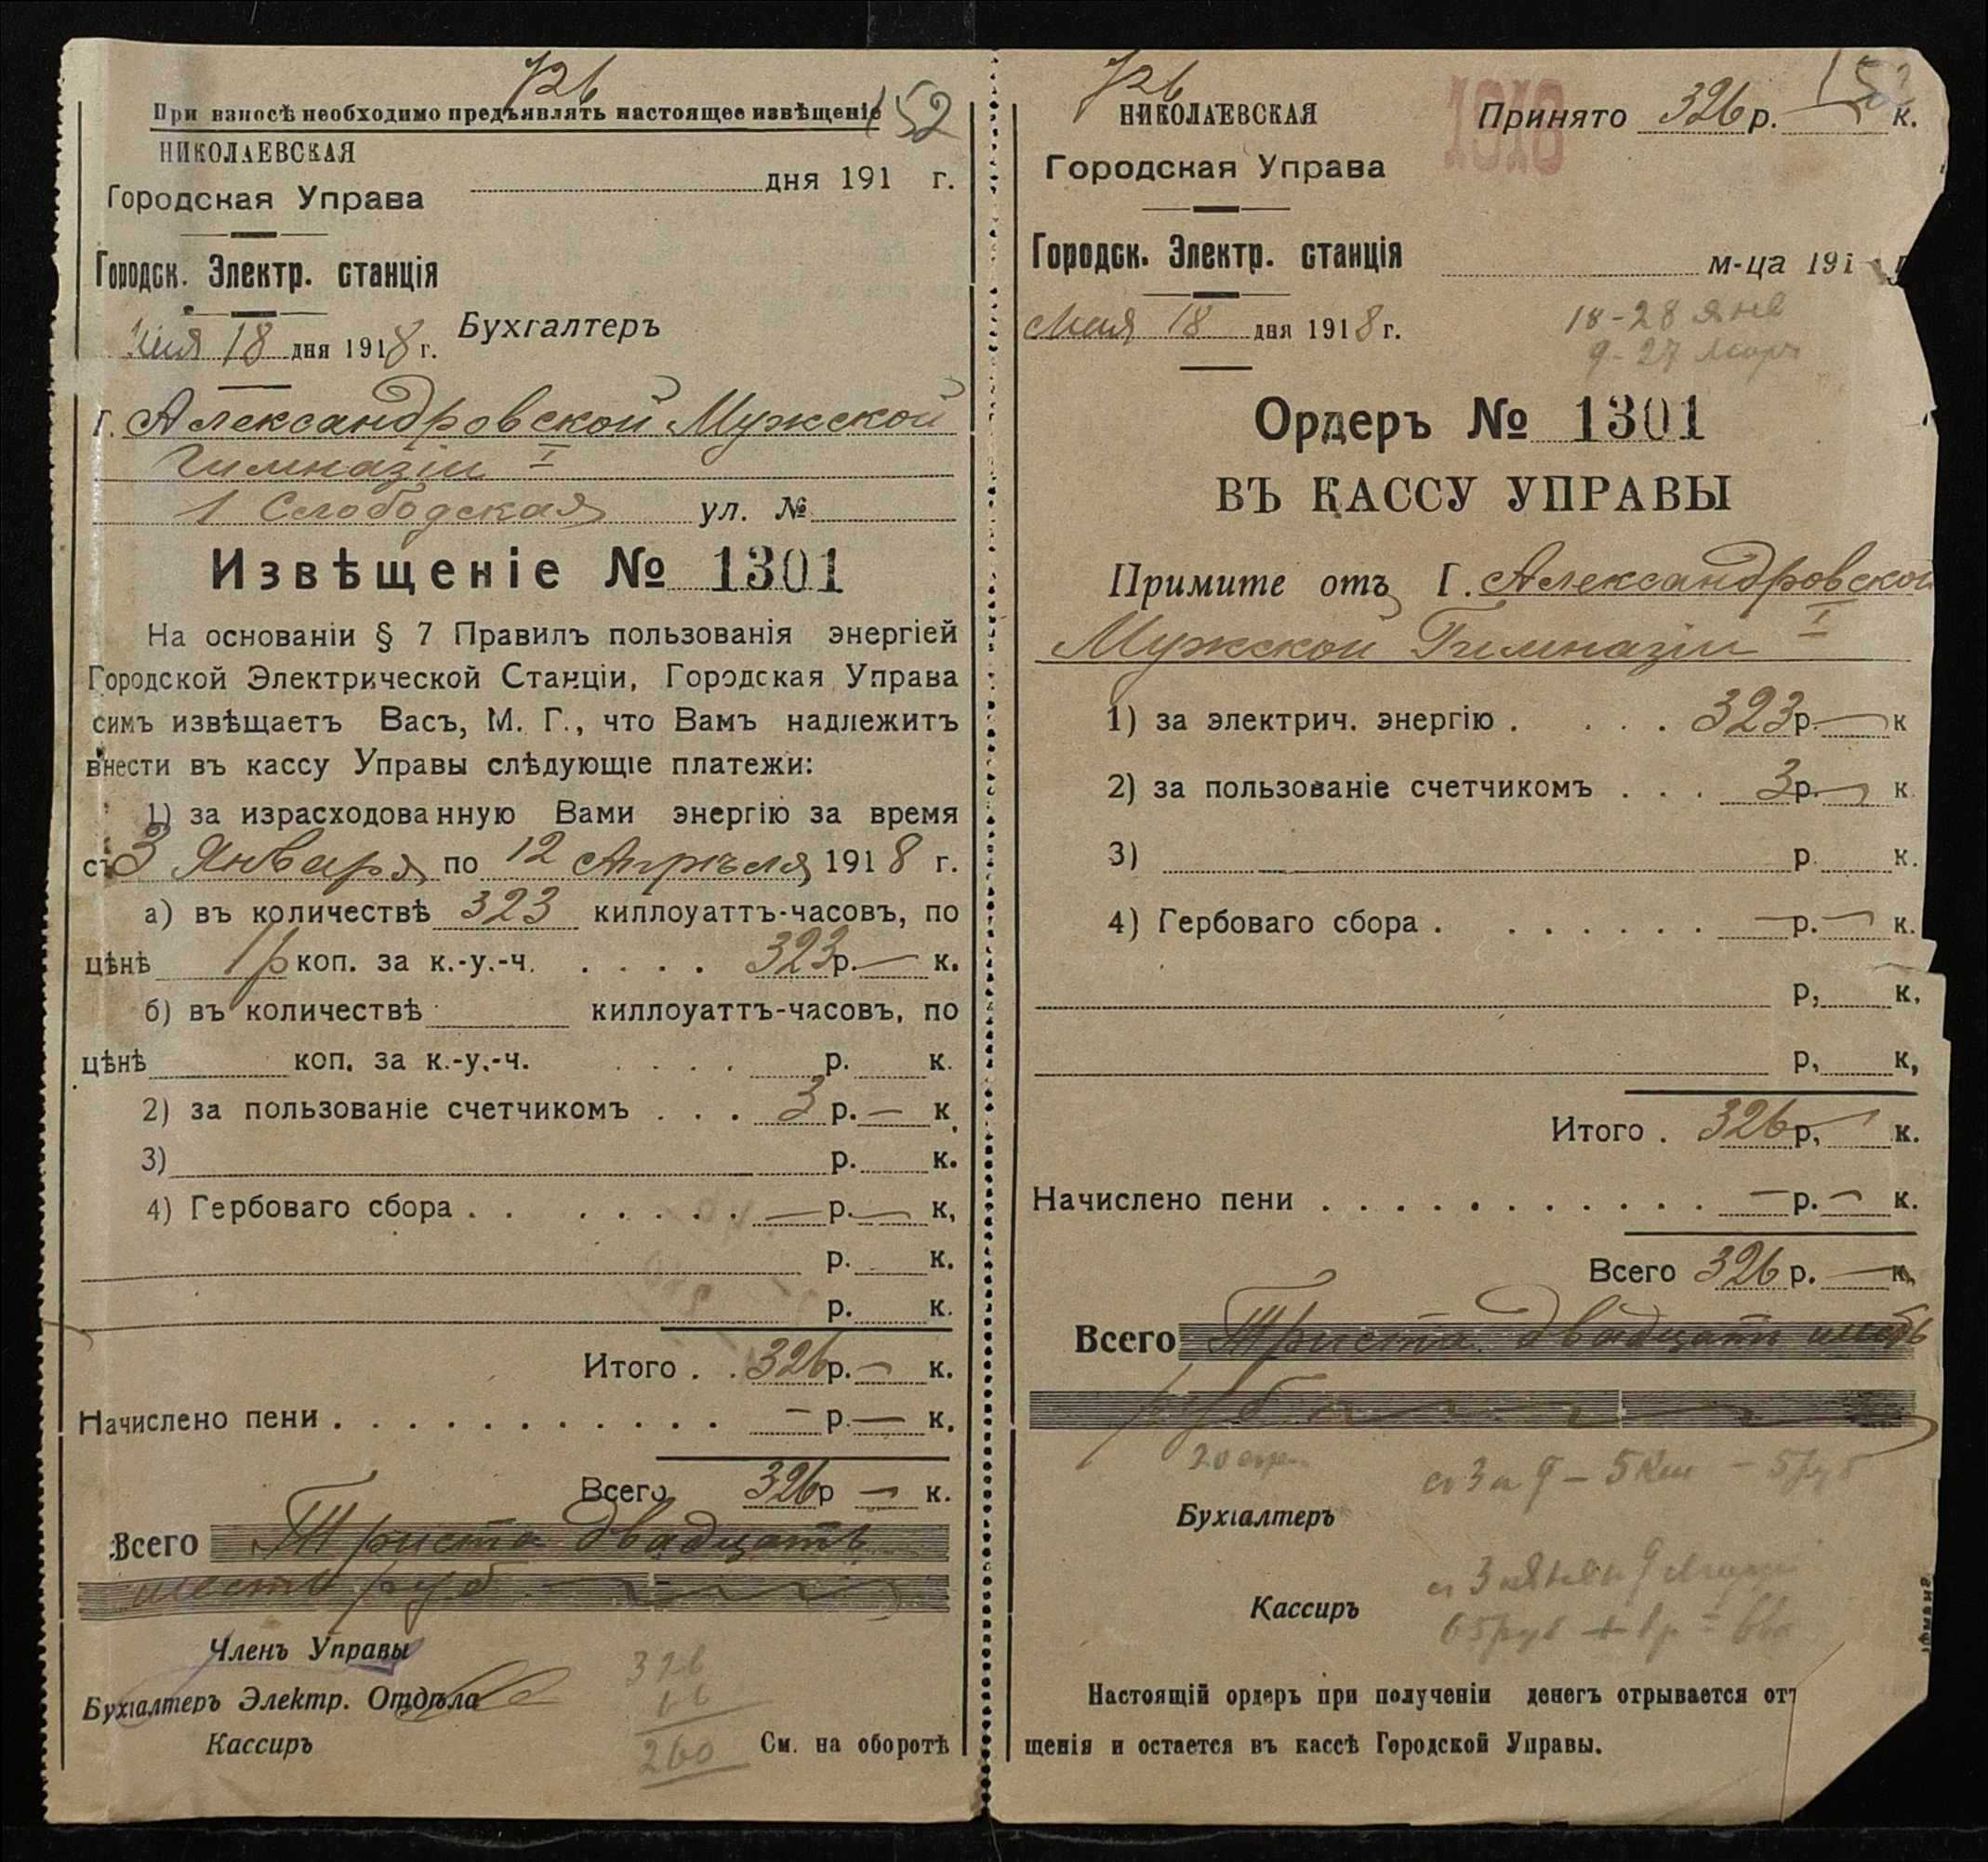 726
При взносѣ необходимо предъявлять настоящее извѣщеніе
152
НИКОЛАЕВСКАЯ
Городская Управа
дня 191 г.
Городск. Электр. станція
Бухгалтеръ
Мая 18 дня 1918 г.
Г. Александровской Мужской
Гимназіи I
1 Слободская ул. №
Извѣщеніе № 1301
На основаніи § 7 Правилъ пользованія энергіей
Городской Электрической Станціи, Городская Управа
симъ извѣщаетъ Васъ, М. Г., что Вамъ надлежитъ
внести въ кассу Управы слѣдующіе платежи:
1) за израсходованную Вами энергію за время
съ 3 Января по 12 Апрѣля 1918 г.
а) въ количествѣ 323 киллоуаттъ-часовъ, по
цѣнѣ 1 р коп. за к.-у.-ч. . . . . 323 р. — к.
б) въ количествѣ киллоуаттъ-часовъ, по
цѣнѣ коп. за к.-у.-ч. . . . . р. к.
2) за пользованіе счетчикомъ . . . 3 р. — к.
3) р. к.
4) Гербоваго сбора . . . . . . . . — р. — к.
р. к.
р. к.
Итого . . 326 р. — к.
Начислено пени . . . . . . . . . . . . — р. — к.
Всего 326 р — к.
Всего Триста двадцать
шесть руб
Членъ Управы
Бухгалтеръ Электр. Отдѣла
Кассиръ
326
66
260
См. на оборотѣ
726
НИКОЛАЕВСКАЯ
1918
Принято 326 р. — к.
152
Городская Управа
Городск. Электр. станція
м-ца 191 г
Мая 18 дня 1918 г.
18-28 янв
9-27 Март
Ордеръ № 1301
ВЪ КАССУ УПРАВЫ
Примите отъ Г. Александровской
Мужской Гимназіи I
1) за электрич. энергію . . . . 323 р. — к
2) за пользованіе счетчикомъ . . . 3 р. — к.
3) р. к.
4) Гербоваго сбора . . . . . . . . — р. — к.
р, к,
р, к,
Итого . 326 р, — к.
Начислено пени . . . . . . . . . . . . — р. — к.
Всего 326 р. — к,
Всего Триста двадцать шесть
руб
Бухгалтеръ
Кассиръ
Настоящій ордеръ при полученіи денегъ отрывается от
щенія и остается въ кассѣ Городской Управы.